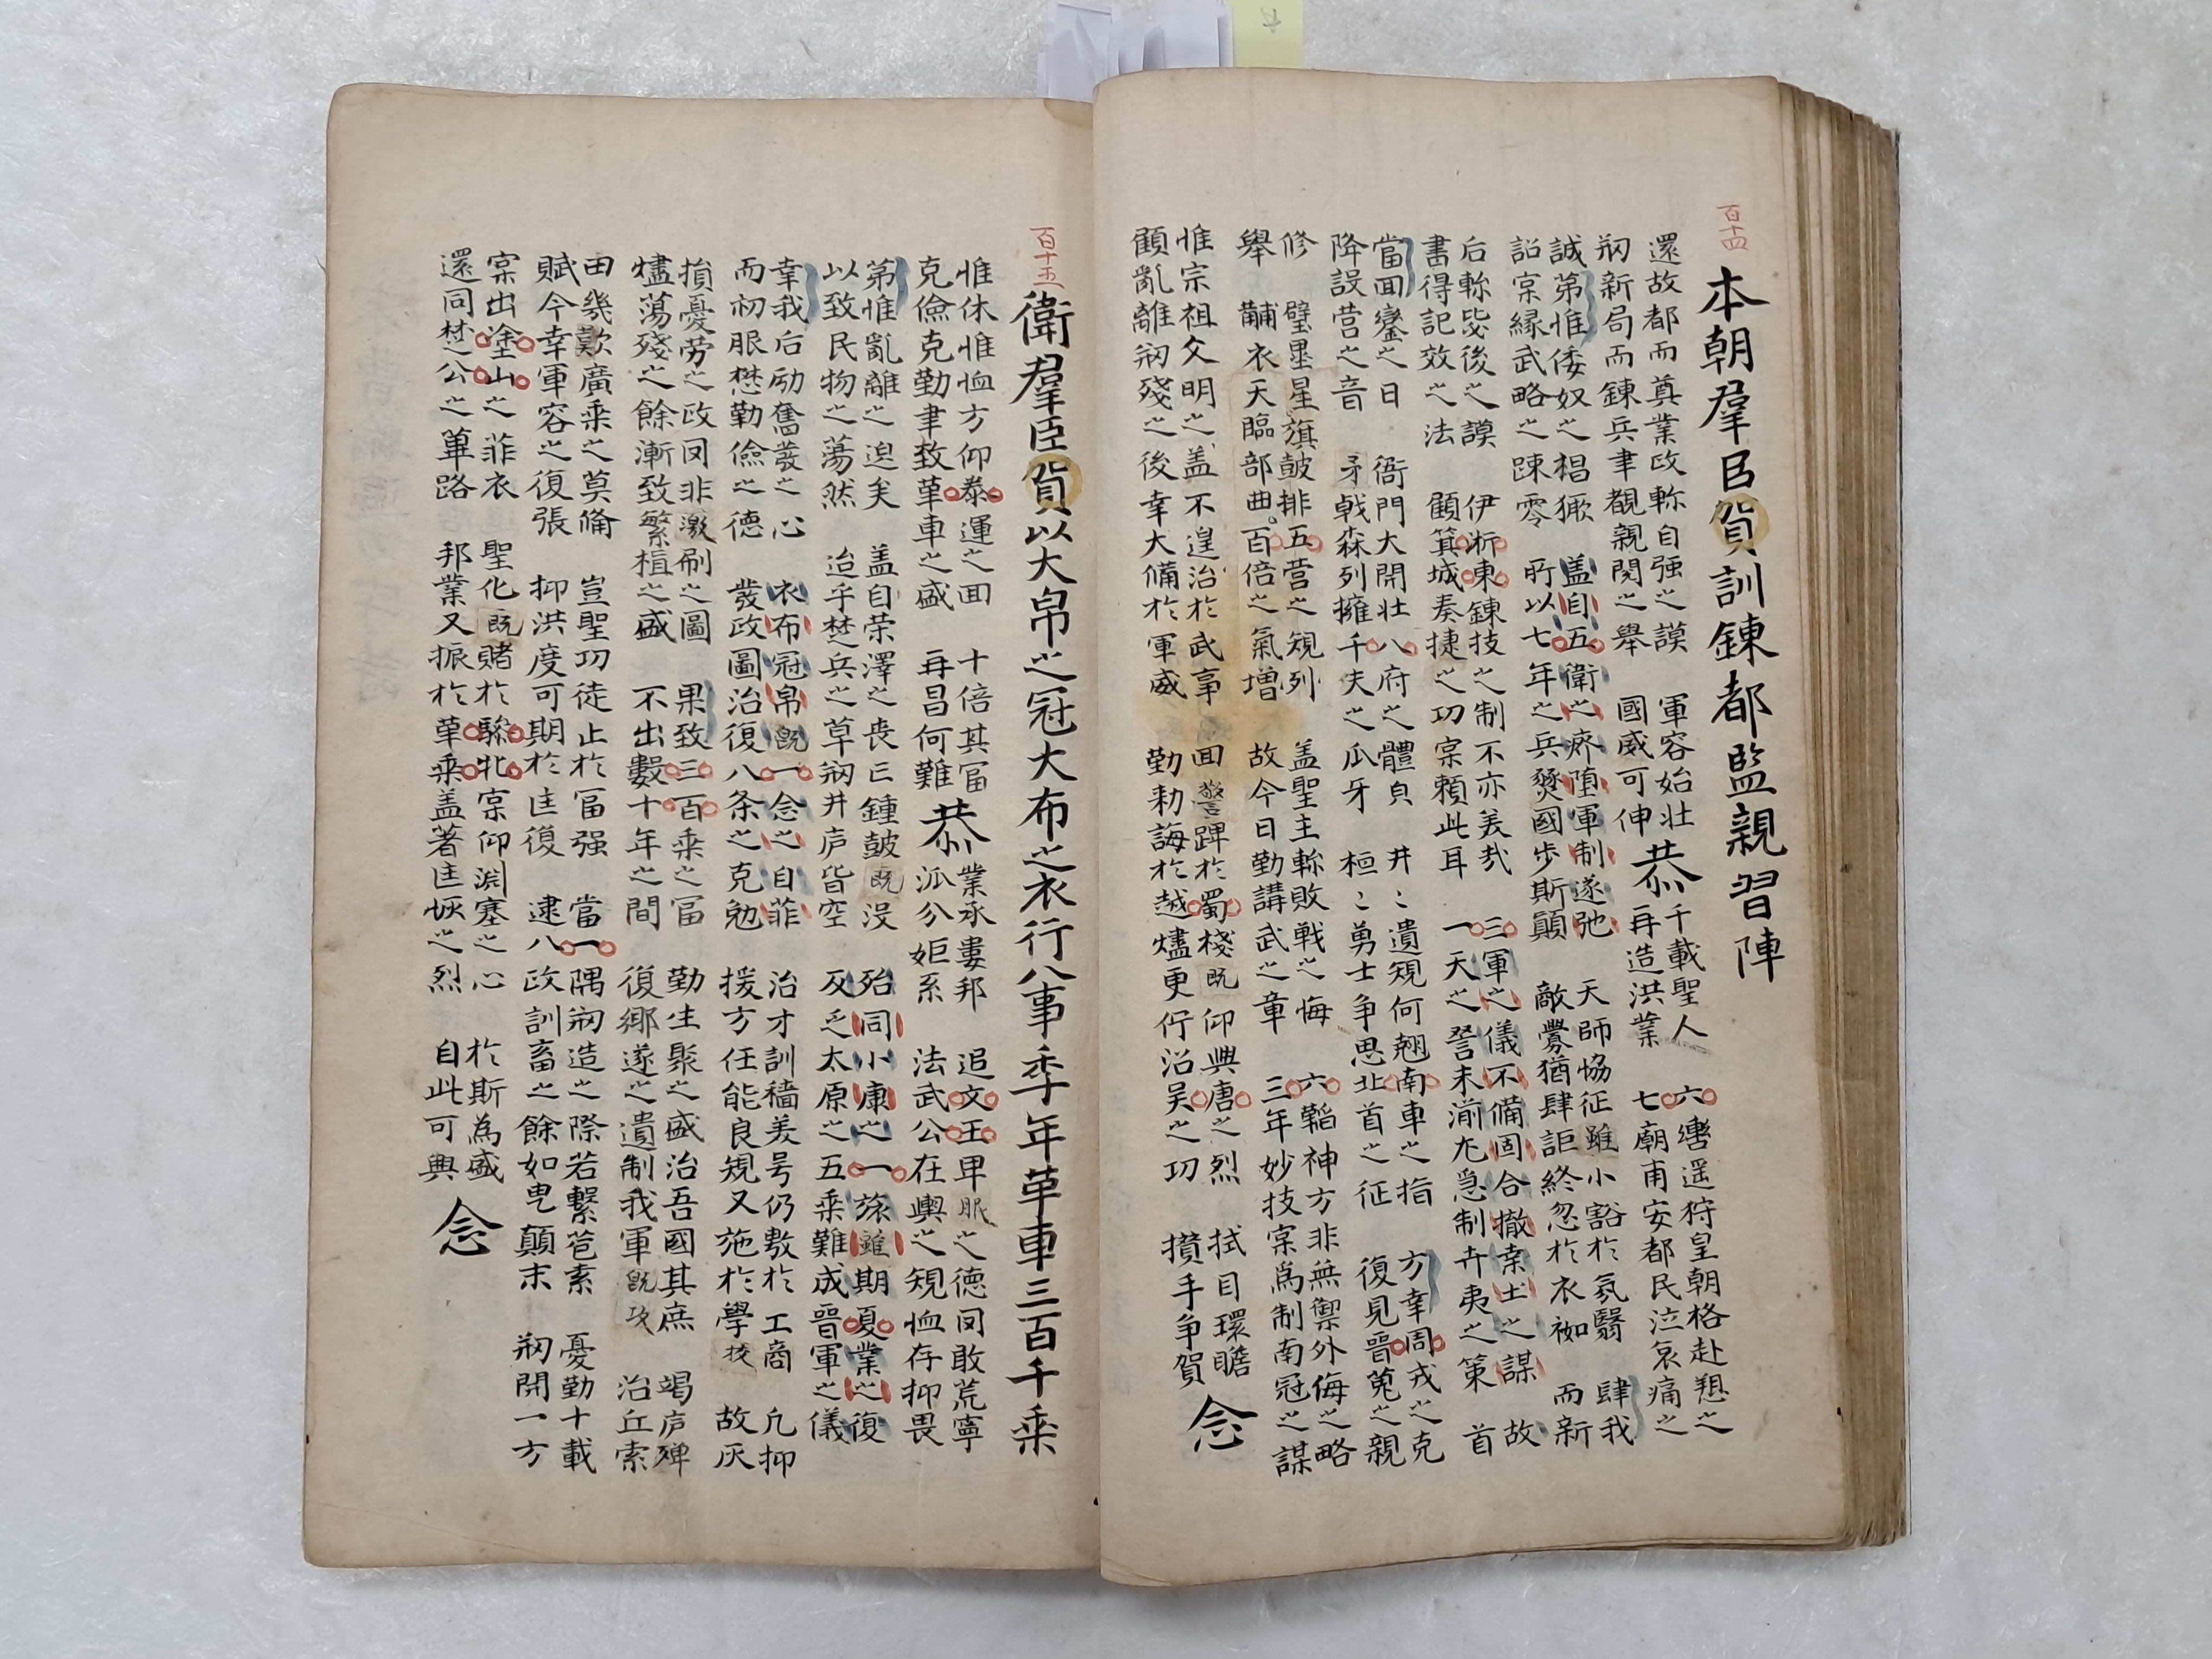 百十四
本朝羣臣賀訓鍊都監親習陣
還故都而奠業政軫自强之謨 軍容始壯 恭 千載聖人 六轡遥狩皇朝格赴愬之
刱新局而鍊兵聿觀親閱之舉 國威可伸 再造洪業 七廟甫安都民泣哀痛之
誠第惟倭奴之猖獗 盖自五衛之疵墮軍制遂弛 天師恊征雖小豁於氛翳 肆我
詔寔緣武略之踈零 所以七年之兵燹國步斯顚 敵釁猶肆詎終忽於衣袽 而新
后軫毖後之謨 伊浙東鍊技之制不亦美哉 三軍之儀不備固合撤桒土之謀 故
書得記效之法 顧箕城奏捷之功寔賴此耳 一天之讐未湔尤急制卉夷之策 首
當回鑾之日 衙門大開壯八府之體貟 井〻遺䂓何翅南車之指 方幸周戎之克
降設营之音 矛戟森列擁千夫之瓜牙 桓〻勇士争思北首之征 復見晉蒐之親
修 璧壘星旗皷排五营之䂓列 盖聖主軫敗戦之悔 六韜神方非無禦外侮之略
舉 黼衣天臨部曲百倍之氣增 故今日勤講武之章 三年妙技寔爲制南冠之謀
惟宗祖文明之盖不遑治於武事 回警蹕於蜀棧既仰興唐之烈 拭目環瞻
顧亂離刱殘之後幸大備於軍威 勤勑誨於越燼更佇沼吴之功 攅手争賀 念
百十五
衛羣臣賀以大帛之冠大布之衣行八事季年革車三百千乘
惟休惟恤方仰泰運之回 十倍其冨 恭 業承婁邦 追文王卑服之德罔敢荒寧
克儉克勤聿致革車之盛 再昌何難 派分姫系 法武公在輿之䂓恤存抑畏
第惟亂離之迫矣 盖自荣澤之喪亡鍾皷既没 殆同小康之一旅雖期夏業之復
以致民物之蕩然 迨乎楚兵之草刱井庐皆空 反乏太原之五乘難成晉軍之儀
幸我后励奮發之心 衣布冠帛既一念之自菲 治才訓穡美号仍敷於工商 凢抑
而初服懋勤儉之德 發政圖治復八条之克勉 援方任能良䂓又施於學校 故灰
損憂劳之政罔非激刷之圖 果致三百乘之冨 勤生聚之盛治吾國其庶 竭庐殫
燼蕩殘之餘漸致繁植之盛 不出數十年之間 復郷遂之遺制我軍既攻 治丘索
田幾歎廣乘之莫備 豈聖功徒止於冨强 當一隅刱造之際若繫苞素 憂勤十載
賦今幸軍容之復張 抑洪度可期於匡復 逮八政訓畜之餘如顛末 刱開一方
寔出塗山之菲衣 聖化既賭於騋牝寔仰淵塞之心 於斯為盛
還同楚公之蓽路 邦業又振於革乘盖著匡恢之烈 自此可興 念